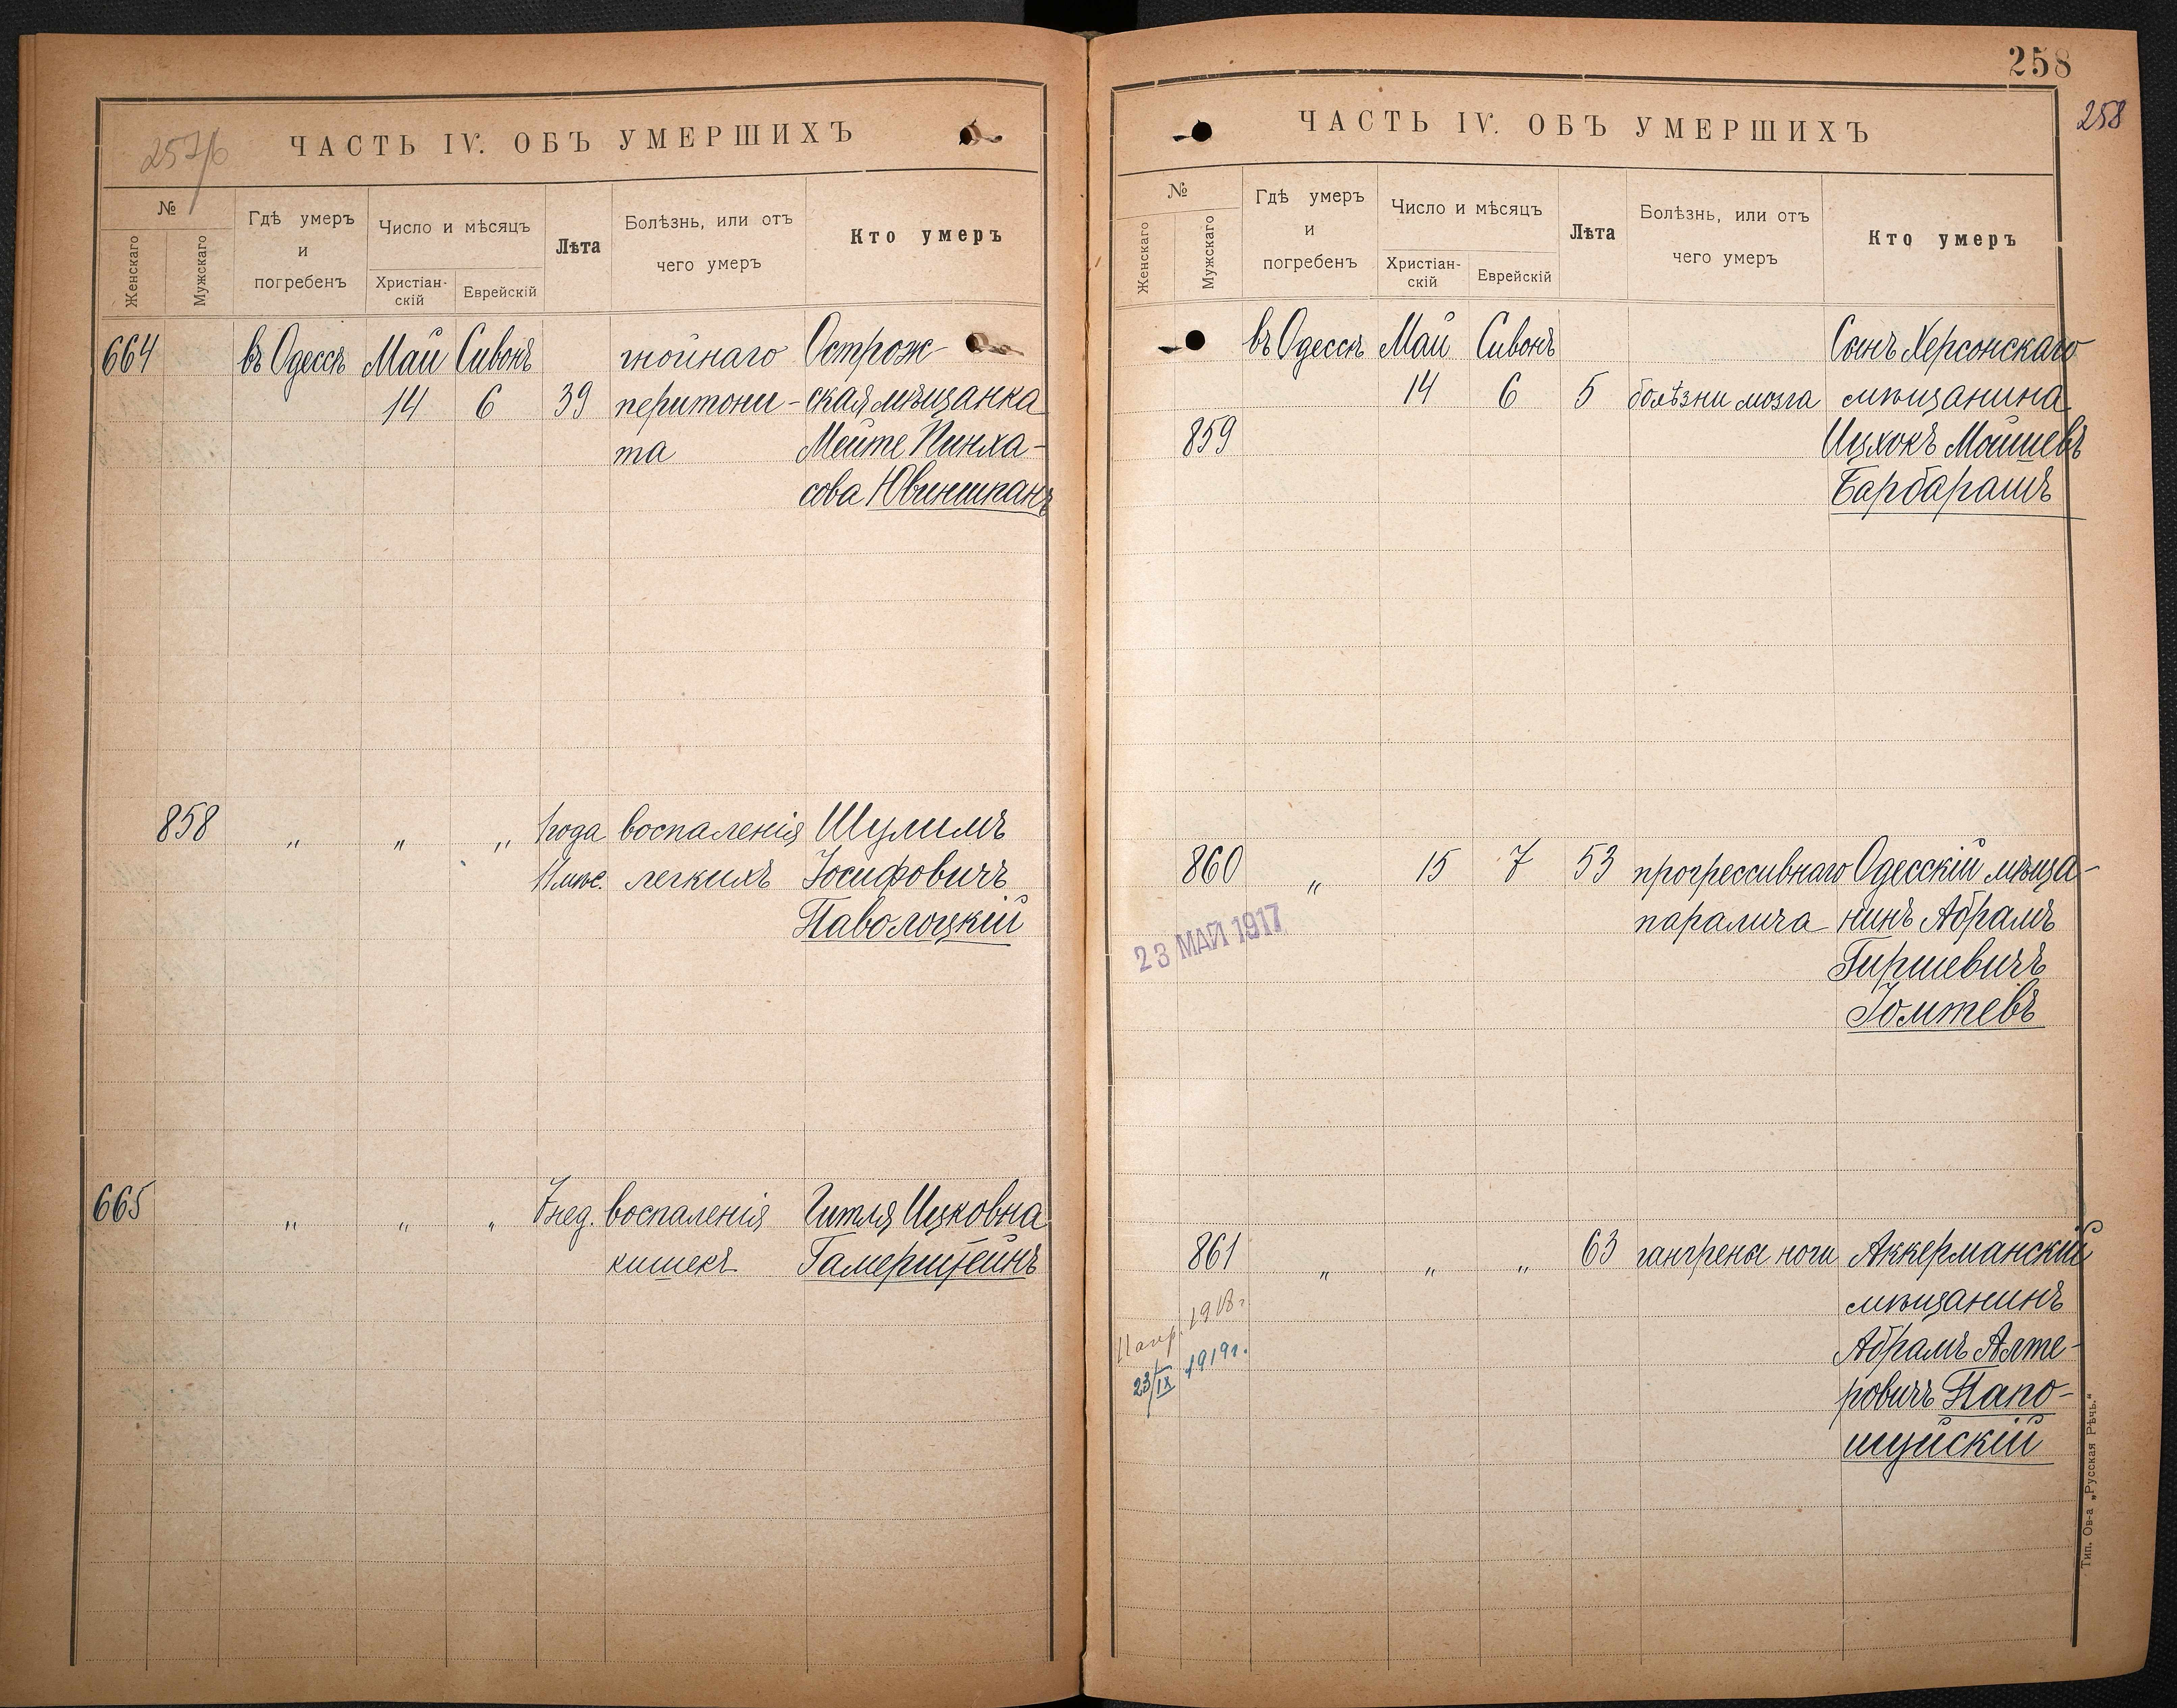 257/б
ЧАСТЬ IV. ОБЪ УМЕРШИХЪ
№
Женскаго
Мужскаго
Гдѣ умеръ
и
погребенъ
Число и мѣсяцъ
Христіан-
скій
Еврейскій
Лѣта
Болѣзнь, или отъ
чего умеръ
Кто умеръ
664 въ Одессѣ Май Сивонъ гнойнаго Острож-
14 6 39 перитони- ская мѣщанка
та Мейте Пинха-
сова Ювиншпанъ
858 „ „ „ 1 года воспаленія Шулимъ
11 мѣс. легкихъ Іосифовичъ
Паволоцкій
665 „ „ „ 7 нед. воспаленія Гитля Ицковна
кишекъ Гамерштейнъ
258
258
ЧАСТЬ IV. ОБЪ УМЕРШИХЪ
№
Женскаго
Мужскаго
Гдѣ умеръ
и
погребенъ
Число и мѣсяцъ
Христіан-
скій
Еврейскій
Лѣта
Болѣзнь, или отъ
чего умеръ
Кто умеръ
въ Одессѣ Май Сивонъ Сынъ Херсонскаго
14 6 5 болѣзни мозга мѣщанина
859 Ицхокъ Мошевъ
Барбарашъ
860 „ 15 7 53 прогрессивнаго Одесскій мѣща-
паралича нинъ Абрамъ
23 МАЙ 1917
Гиршевичъ
Іомтевъ
861 „ „ „ 63 гангрены ноги Аккерманскій
мѣщанинъ
11 апр. 1918 г.
Абрамъ Алте-
23/IX 1919 г.
ровичъ Папо-
шуйскій
Тип. Ов-а „Русская Рѣчь.“